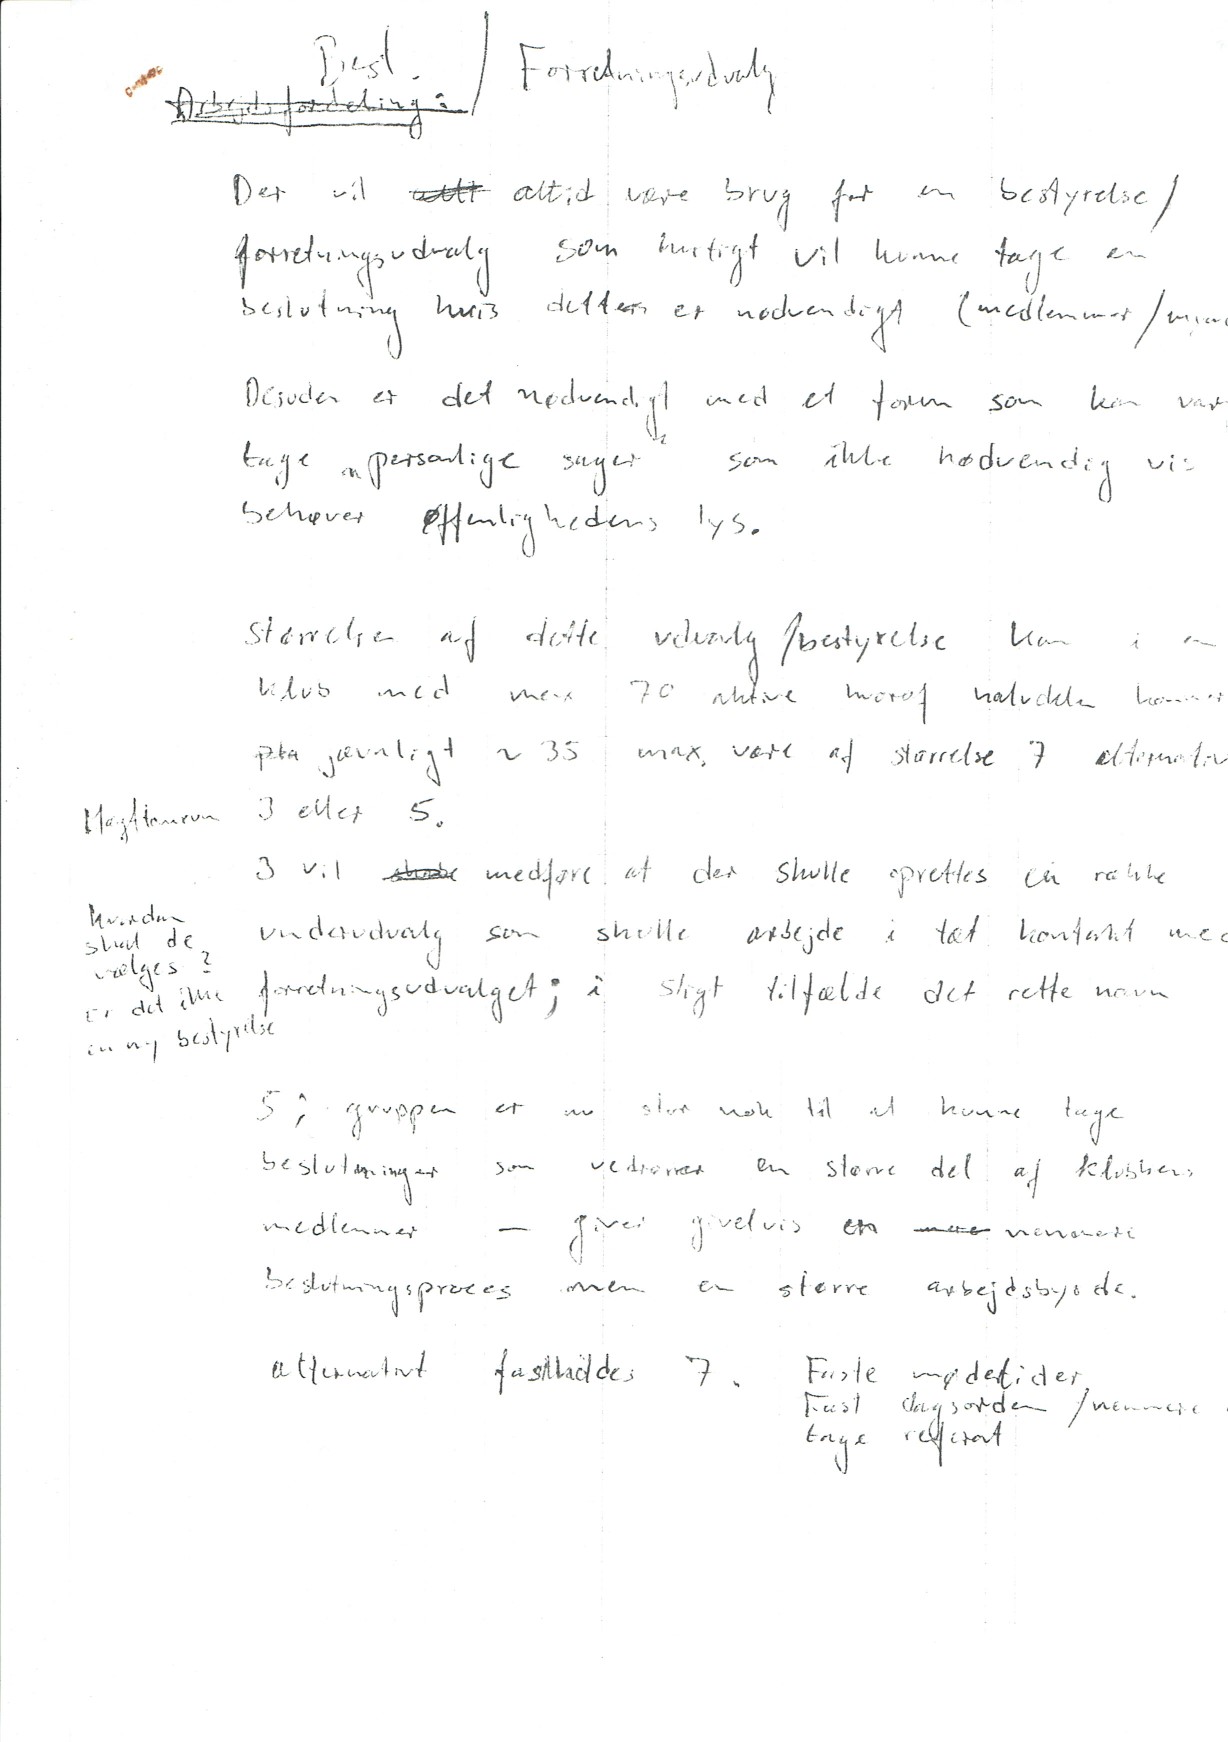 Best. / Forretningsudvalg
Arbejdsfordeling:
Der vil altid være brug for en bestyrelse/
forretningsudvalg som hurtigt vil kunne tage en
beslutning hvis detten er nødvendigt (medlemmer/
Desuden er det nødvendigt med et forum som kan var
tage "personlige sager" som ikke nødvendig vis
behøver offentlighedens lys.
Størrelsen af dette udvalg/bestyrelse kan i en
klub med max 70 aktive hvoraf halvdelen kommer
jævnligt ~ 35 max. være af størrelse 7 alternativ
3 eller 5.
3 vil medføre at der skulle oprettes en række
underudvalg som skulle arbejde i tæt kontakt med
forretningsudvalget; i sligt tilfælde det rette navn
Hvordan
skal de
vælges?
er det ikke
en ny bestyrelse
5; gruppen er nu stor nok til at kunne tage
beslutninger som vedrører en større del af klubbens
medlemmer — giver givetvis en nemmere
beslutningsproces men en større arbejdsbyrde.
alternativt fastholdes 7. Faste mødetider
Fast dagsorden /nemmere
tage referat